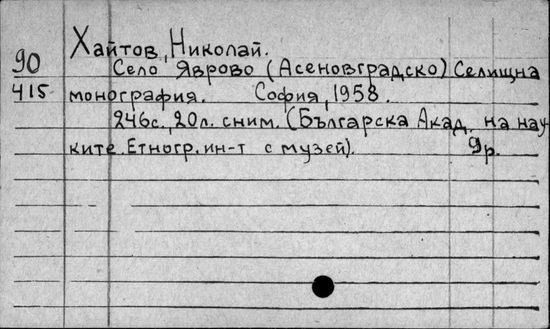 Хайтов, Николай.
90 Село Яврово (Асеновградско) Селищна
415 монография. София, 1958.
246с., 20л. сним. (Българска Акад. на нау-
ките. Етногр. ин-т с музей). 9р.